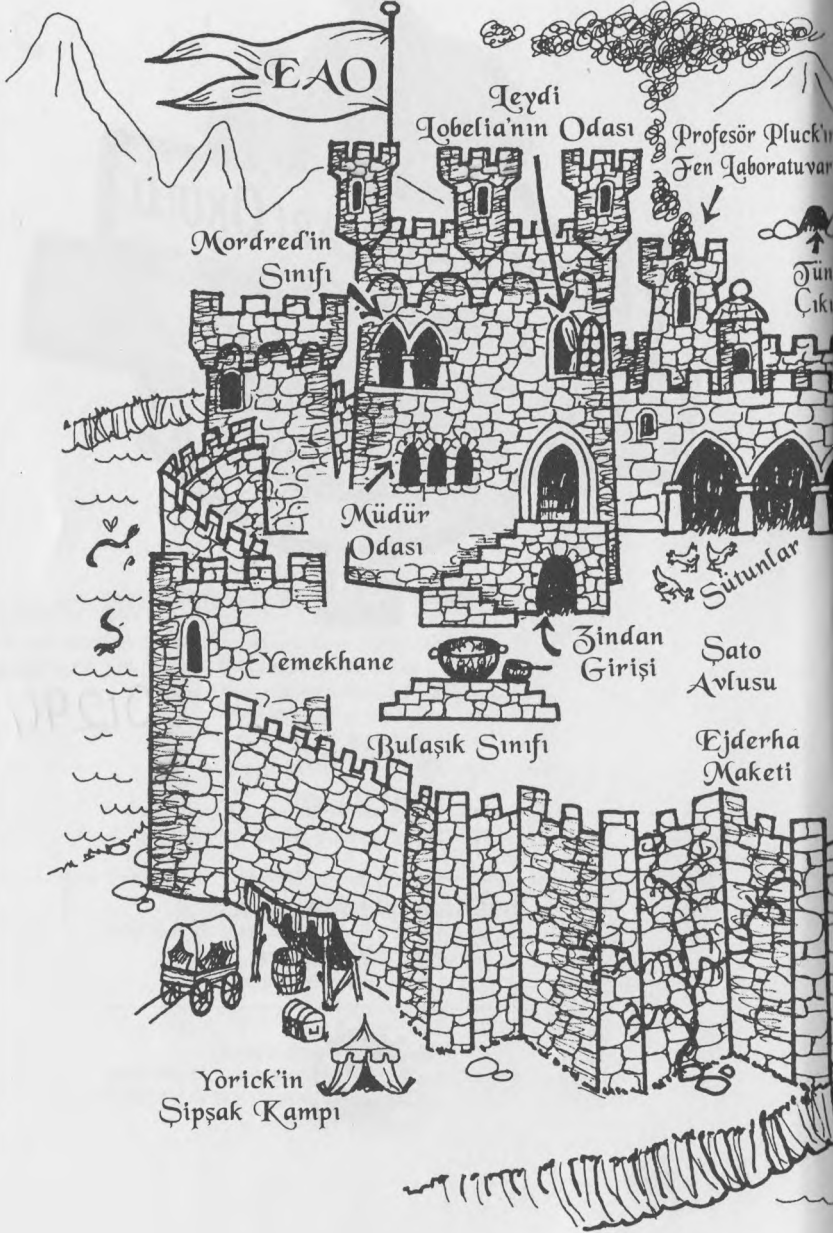 EAO
Leydi
Lobelia'nın Odası
Profesör Pluck'ın
Fen Laboratuvar
Mordred'in
Sınıfı
Tün
Çıkı
Müdür
Odası
Sütunlar
Zindan
Girişi
Şato
Avlusu
Yemekhane
Bulaşık Sınıfı
Ejderha
Maketi
Yorick'in
Şipşak Kampı